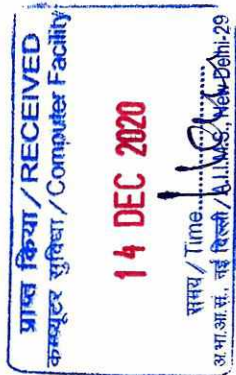 प्राप्त किया / RECEIVED
कम्प्यूटर सुविधा / Computer Facility
14 DEC 2020
समय / Time
अ.भा.आ.सं., नई दिल्ली / A.I.I.M.S., New Delhi-29